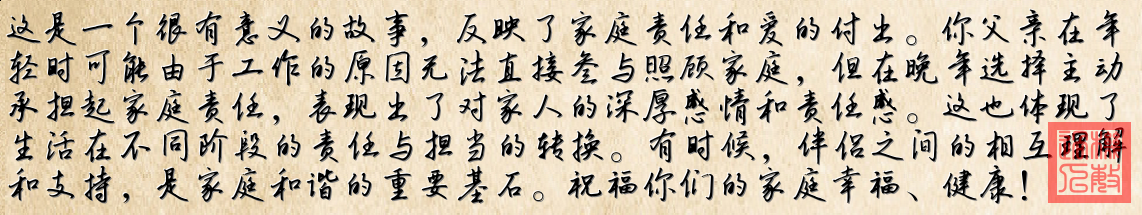 这是一个很有意义的故事，反映了家庭责任和爱的付出。你父亲在年
轻时可能由于工作的原因无法直接参与照顾家庭，但在晚年选择主动
承担起家庭责任，表现出了对家人的深厚感情和责任感。这也体现了
生活在不同阶段的责任与担当的转换。有时候，伴侣之间的相互理解
和支持，是家庭和谐的重要基石。祝福你们的家庭幸福、健康！